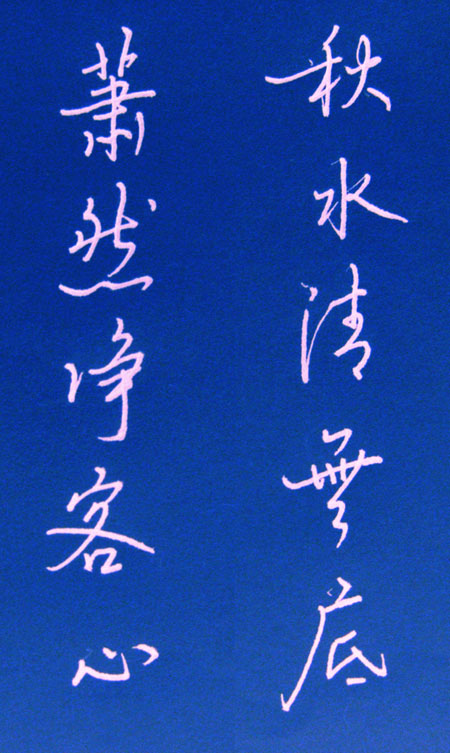 秋水清無底
蕭然净客心